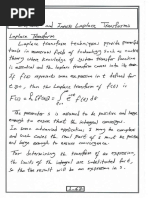 and Inverse Laplace Transforms
Laplace Transform
Laplace transform techniques provide powerful
tools in numerous fields of technology such as control
theory where knowledge of the system transfer function
is essential and the Laplace transform comes into its own
If f(t) represents some expression in t defined for
t ≥ 0, then the Laplace transform of f(t) is
F(s) = L{f(t)} = ∫₀^∞ e^{-st} f(t) dt
The parameter s is assumed to be positive and large
enough to ensure that the integral converges.
In some advanced applications s may be complex
and such cases the real part of s must be positive
and large enough to ensure convergence.
For determining the transform of an expression,
the limits of the integral are substituted for t,
so the the result will be an expression in s.